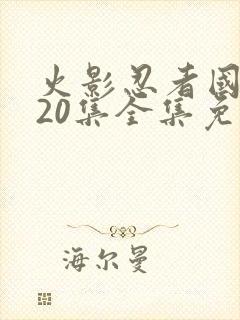 火影忍者國
20集全集免
海尔曼